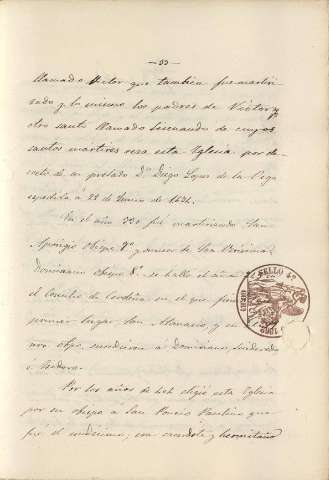 —55—
llamado Victor que tambien fue martiri
zado y lo mismo los padres de Victor y
otro santo llamado Sisenando de cuyos
santos martires reza esta Iglesia por de
creto de un prelado Dⁿ Diego Lopez de la Vega
espedido á 22 de Enero de 1621.
En el año 330 fué martirizado San
Aparigio Obispo 7º y sucesor de San
Domiciano obispo 8º se halló el año
el Concilio de Cordoba en el que
primer lugar San Atanasio, y en
obpo, sucedieron á Domiciano,
á Isidoro.
Por los años de 404 eligió esta Iglesia
por su obispo a San Poncio Paulino que
fué el undécimo, era sacerdote y hermitaño
SELLO 4º